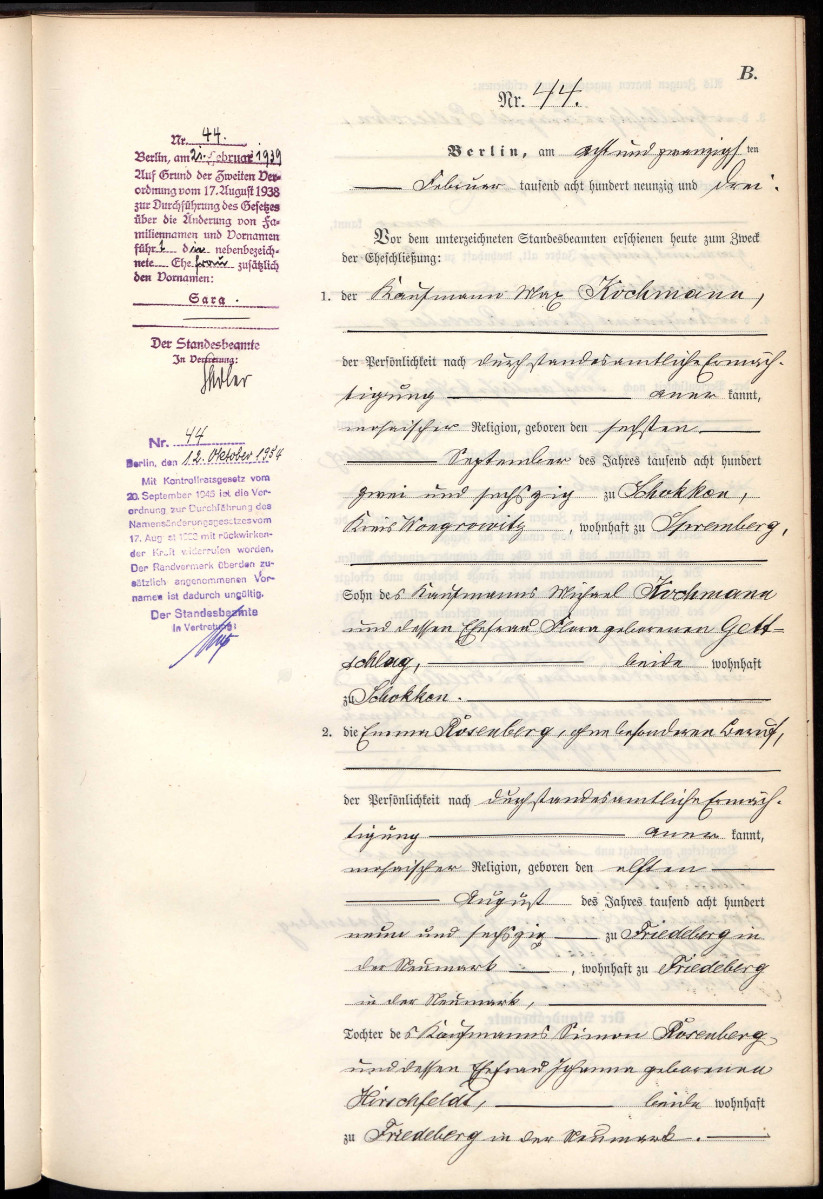 B.
Nr. 44.
Berlin, am acht und zwanzigsten
Februar tausend acht hundert neunzig und drei.
Vor dem unterzeichneten Standesbeamten erschienen heute zum Zweck
der Eheschließung:
1. der Kaufmann Max Kochmann,
der Persönlichkeit nach durch standesamtliche Ermäch-
tigung aner kannt,
mosaischer Religion, geboren den sechsten
September des Jahres tausend acht hundert
zwei und sechszig zu Schokken,
Kreis Wongrowitz, wohnhaft zu Spremberg,
Sohn des Kaufmanns Michael Kochmann
und dessen Ehefrau Flora geborenen Gott=
schlag, beide wohnhaft
zu Schokken.
2. die Emma Rosenberg, ohne besonderen Beruf,
der Persönlichkeit nach durch standesamtliche Ermäch-
tigung aner kannt,
mosaischer Religion, geboren den elften
August des Jahres tausend acht hundert
neun und sechszig zu Friedeberg in
der Neumark, wohnhaft zu Friedeberg
in der Neumark,
Tochter des Kaufmanns Simon Rosenberg
und dessen Ehefrau Johanna geborenen
Hirschfeldt, beide wohnhaft
zu Friedeberg in der Neumark.
Nr. 44.
Berlin, am 21. Februar 1939
Auf Grund der Zweiten Ver-
ordnung vom 17. August 1938
zur Durchführung des Gesetzes
über die Änderung von Fa-
miliennamen und Vornamen
führt die nebenbezeich-
nete Ehefrau zusätzlich
den Vornamen:
Sara.
Der Standesbeamte
In Vertretung:
Nr. 44
Berlin, den 12. Oktober 1954
Mit Kontrollratsgesetz vom
20. September 1945 ist die Ver-
ordnung zur Durchführung des
Namensänderungsgesetzes vom
17. August 1938 mit rückwirken-
der Kraft widerrufen worden.
Der Randvermerk über den zu-
sätzlich angenommenen Vor-
namen ist dadurch ungültig.
Der Standesbeamte
In Vertretung: